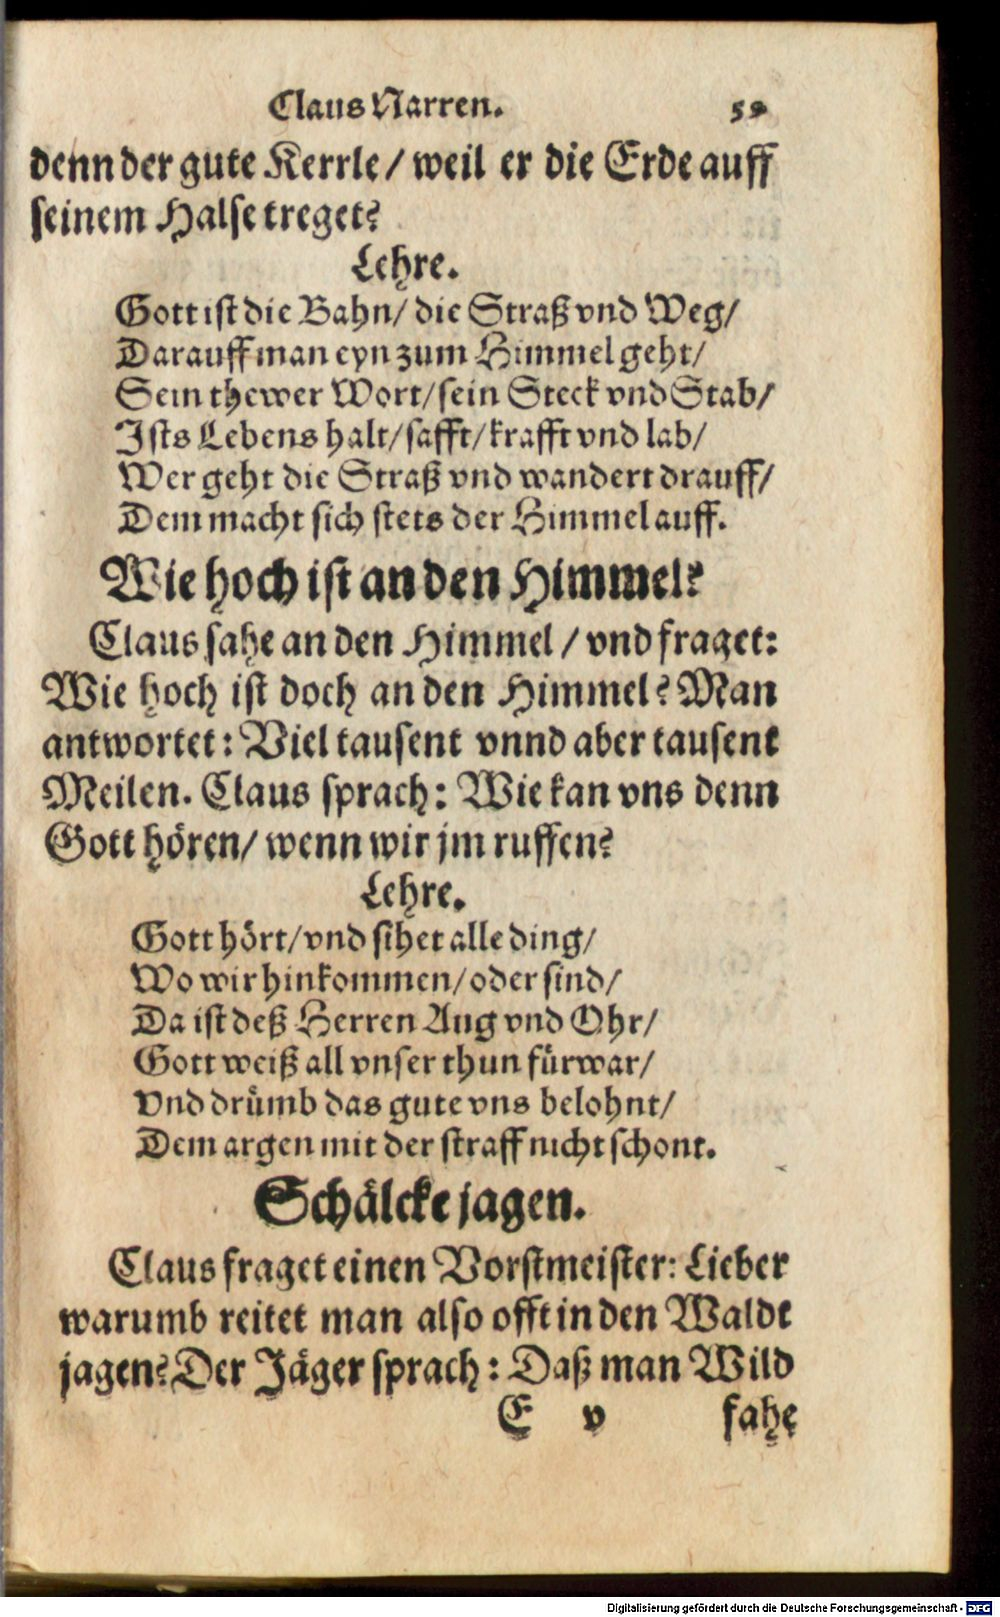 Claus Narren.
denn der gute Kerrle / weil er die Erde auff
seinem Halse treget?
Lehre.
Gott ist die Bahn / die Straß vnd Weg /
Darauff man eyn zum Himmel geht /
Sein thewer Wort / sein Steck vnd Stab /
Ists Lebens halt / safft / krafft vnd lab /
Wer geht die Straß vnd wandert drauff /
Dem macht sich stets der Himmel auff.
Wie hoch ist an den Himmel?
Claus sahe an den Himmel / vnd fraget:
Wie hoch ist doch an den Himmel? Man
antwortet: Viel tausent vnnd aber tausent
Meilen. Claus sprach: Wie kan vns denn
Gott hören / wenn wir jm ruffen?
Lehre.
Gott hört / vnd sihet alle ding /
Wo wir hinkommen / oder sind /
Da ist deß Herren Aug vnd Ohr /
Gott weiß all vnser thun fürwar /
Vnd drümb das gute vns belohnt /
Dem argen mit der straff nicht schont.
Schälcke jagen.
Claus fraget einen Vorstmeister: Lieber
warumb reitet man also offt in den Waldt
jagen? Der Jäger sprach: Daß man Wild
E v fahe
Digitalisierung gefördert durch die Deutsche Forschungsgemeinschaft - DFG